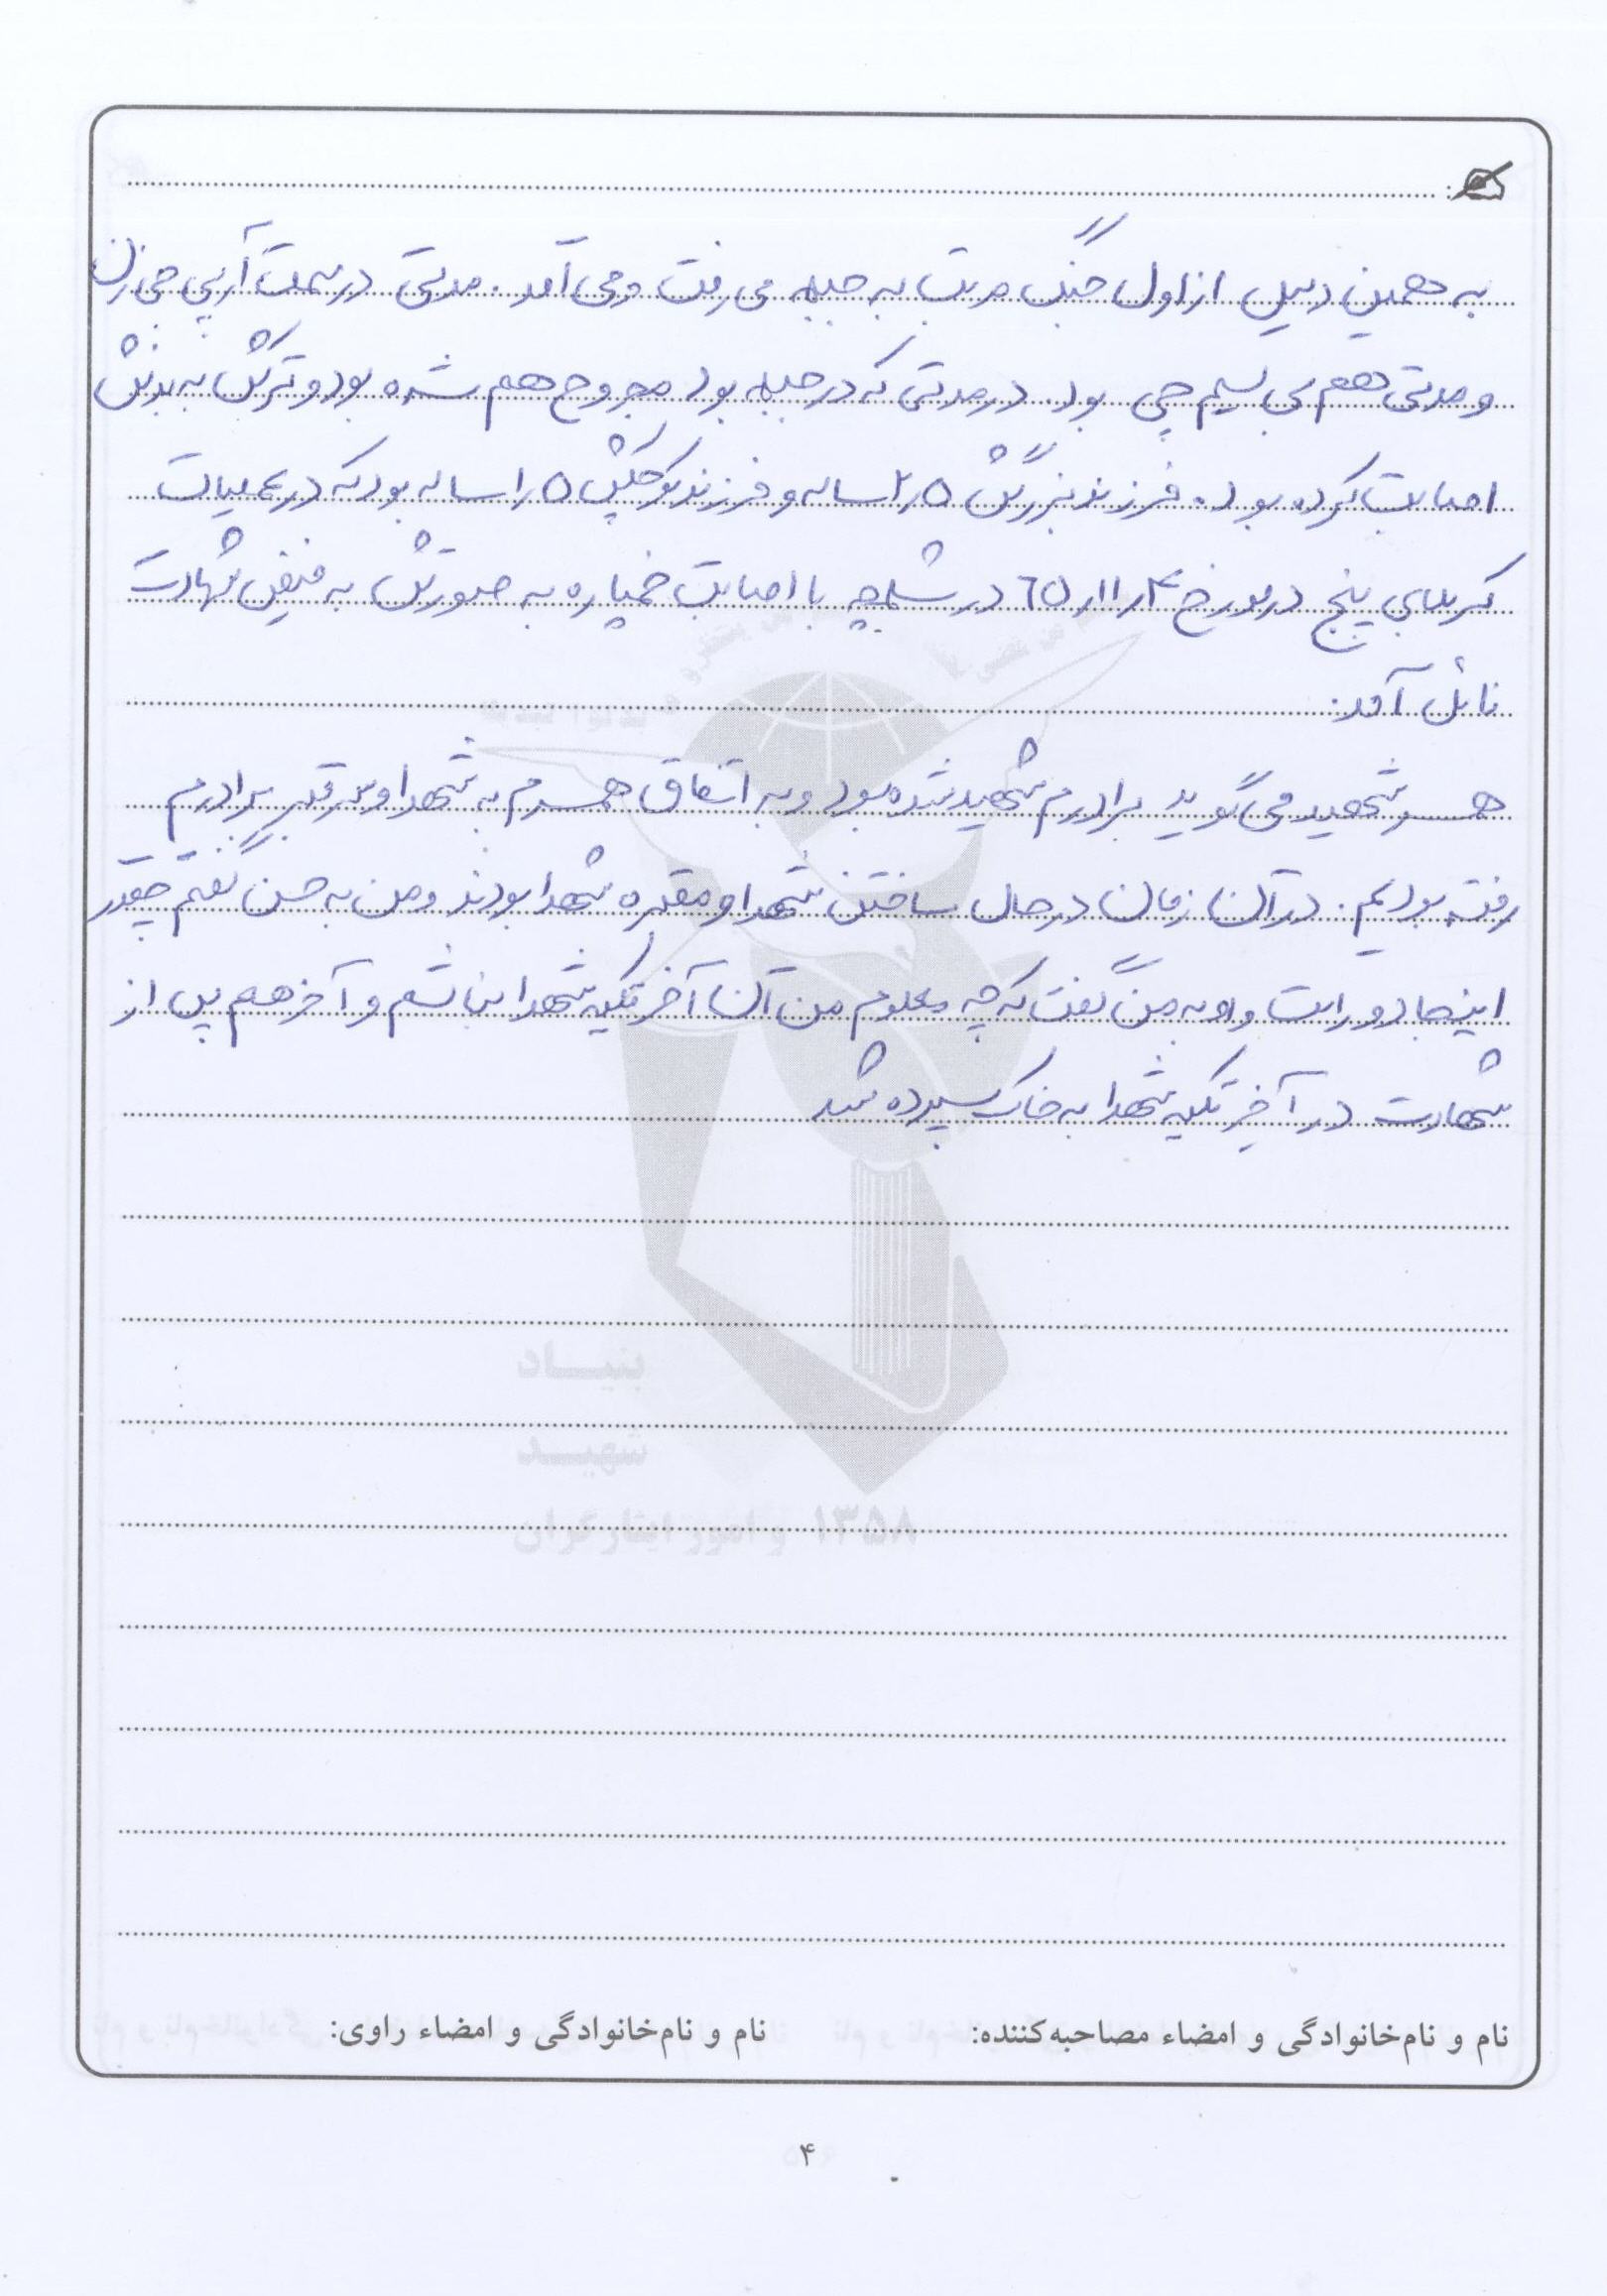 به همین دلیل از اول جنگ مرتب به جبهه می رفت و می آمد. مدتی در سمت آرپی جی زن
و مدتی هم بی سیم چی بود. در مدتی که در جبهه بود مجروح هم شده بود و ترکش به بدنش
اصابت کرده بود. فرزند بزرگش ۲/۵ ساله و فرزند کوچکش ۱/۵ ساله بود که در عملیات
کربلای پنج در مورخ ۶۵/۱۱/۴ در شلمچه با اصابت خمپاره به صورتش به فیض شهادت
نائل آمد.
همسر شهید می گوید برادرم شهید شده بود و به اتفاق همسرم به شهدا و سر قبر برادرم
رفته بودیم. در آن زمان در حال ساختن شهدا و مقبره شهدا بودند و من به حسن گفتم چقدر
اینجا دور است و او به من گفت که چه معلوم من آن آخر تکیه شهدا نباشم و آخر هم پس از
شهادت در آخر تکیه شهدا به خاک سپرده شد
بنیاد
شهید
و امور ایثارگران ۱۳۵۸
نام و نام‌خانوادگی و امضاء مصاحبه‌کننده: نام و نام‌خانوادگی و امضاء راوی:
۴